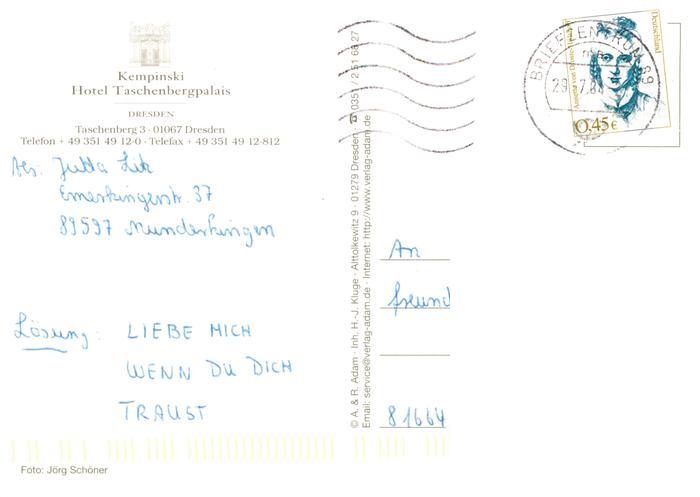 Kempinski
Hotel Taschenbergpalais
DRESDEN
Taschenberg 3 · 01067 Dresden
Telefon + 49 351 49 12-0 · Telefax + 49 351 49 12-812
Abs. Jutta Lik
Emerkingerstr. 37
89597 Munderkingen
Lösung: LIEBE MICH
WENN DU DICH
TRAUST
Foto: Jörg Schöner
© A. & R. Adam · Inh. H.-J. Kluge · Alttolkewitz 9 · 01279 Dresden · 0351 / 2 51 68 27
Email: service@verlag-adam.de · Internet: http://www.verlag-adam.de
BRIEFZENTRUM 89
Deutschland
0,45€
An
freund
81664